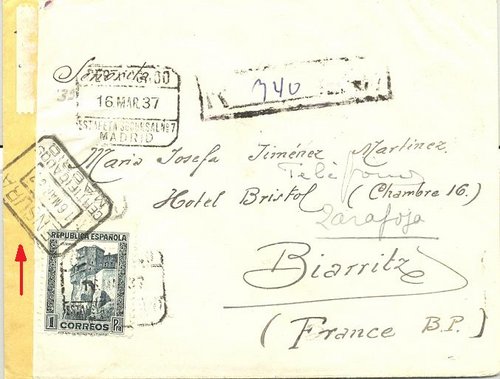 Señorita
16 MAR. 37
ESTAFETA SUCURSAL Nº 7
MADRID
740
Maria Josefa Jiménez Martinez.
Teléfonos
Hotel Bristol (Chambre 16.)
Zaragoza
Biarritz
(France B.P.)
CENSURA
CERTIFICADOS
MADRID
REPUBLICA ESPAÑOLA
1 CORREOS Pta